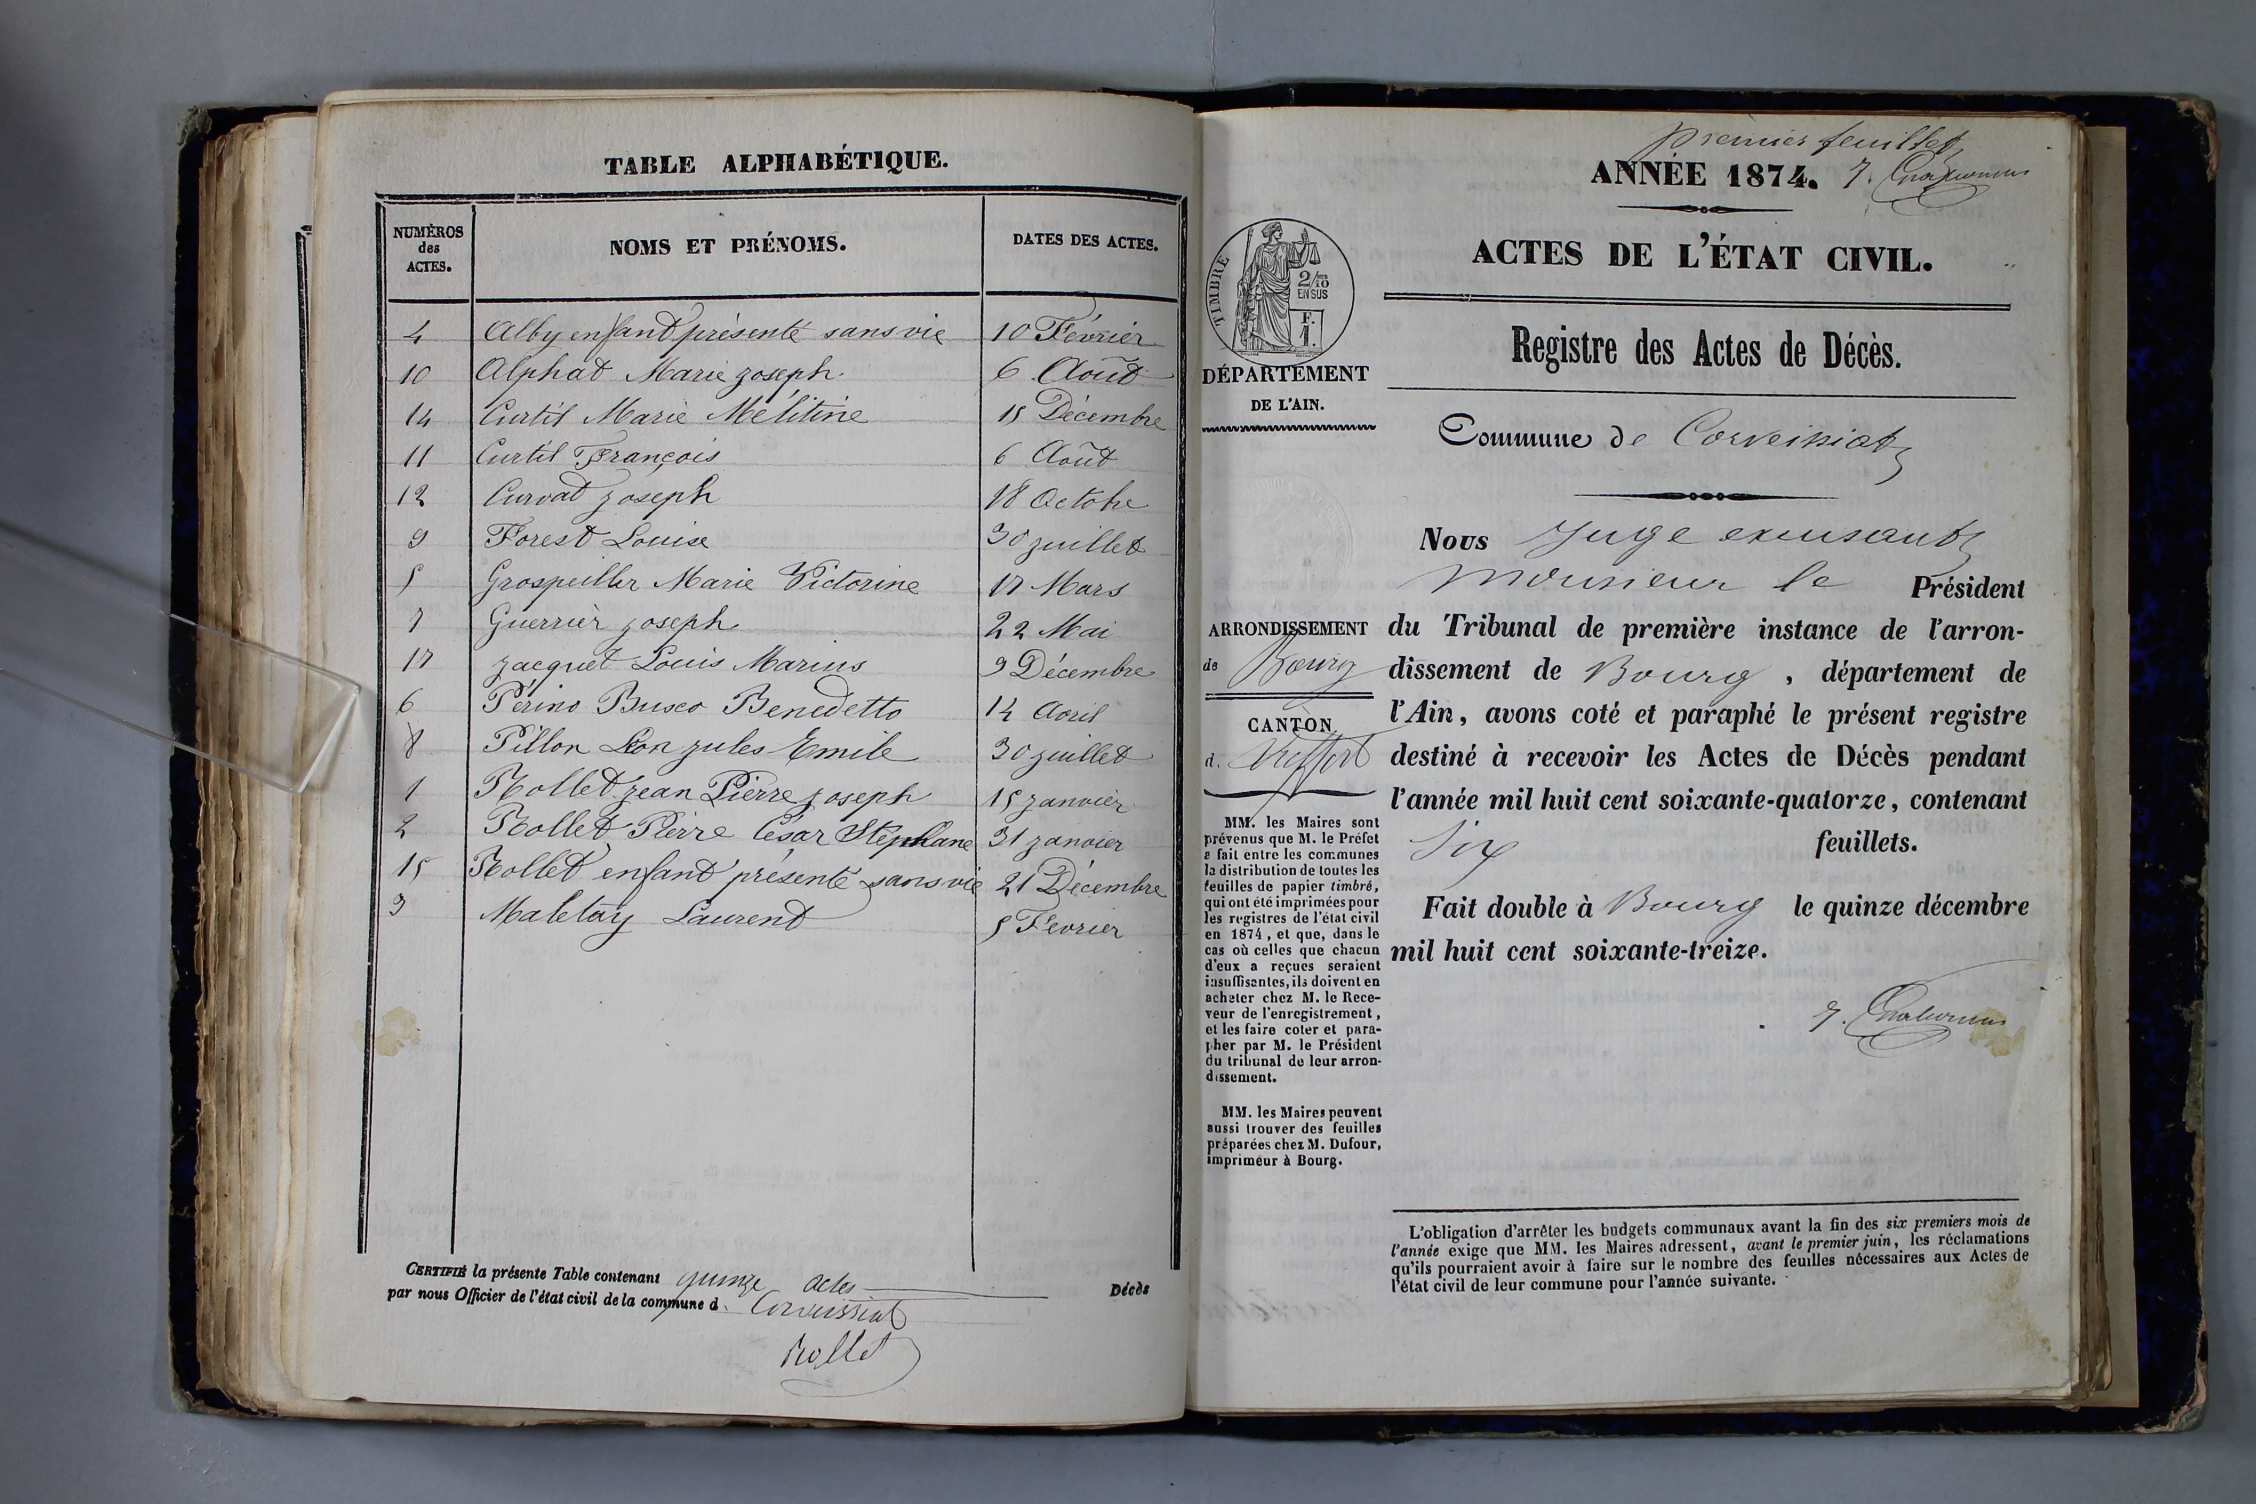 TABLE ALPHABÉTIQUE.
NUMÉROS des ACTES. NOMS ET PRÉNOMS. DATES DES ACTES.
4 Alby enfant présenté sans vie 10 Février
10 Alphat Marie Joseph 6 Août
14 Curtil Marie Mélitine 15 Décembre
11 Curtil François 6 Août
12 Curvat Joseph 18 Octobre
9 Forest Louise 30 Juillet
5 Grospeiller Marie Victorine 17 Mars
7 Guerrier Joseph 22 Mai
Jacquet Louis Marius 9 Décembre
6 Périno Busco Benedetto 14 Avril
8 Pillon Léon Jules Emile 30 Juillet
1 Rollet Jean Pierre Joseph 15 Janvier
2 Rollet Pierre César Stéphane 31 Janvier
15 Rollet enfant présenté sans vie 21 Décembre
3 Maletay Laurent 5 Février
CERTIFIÉ la présente Table contenant quinze actes Décès
par nous Officier de l'état civil de la commune d. Corveissiat
Rollet
premier feuillet
ANNÉE 1874.
ACTES DE L'ÉTAT CIVIL.
TIMBRE
2/10
EN SUS
F.
1.
DÉPARTEMENT
DE L'AIN.
Registre des Actes de Décès.
Commune de Corveissiat
ARRONDISSEMENT
de Bourg
CANTON
d. Treffort
Nous Juge excusant
monsieur le Président
du Tribunal de première instance de l'arron-
dissement de Bourg, département de
l'Ain, avons coté et paraphé le présent registre
destiné à recevoir les Actes de Décès pendant
l'année mil huit cent soixante-quatorze, contenant
Six feuillets.
Fait double à Bourg le quinze décembre
mil huit cent soixante-treize.
MM. les Maires sont
prévenus que M. le Préfet
a fait entre les communes
la distribution de toutes les
feuilles de papier timbré,
qui ont été imprimées pour
les registres de l'état civil
en 1874, et que, dans le
cas où celles que chacun
d'eux a reçues seraient
insuffisantes, ils doivent en
acheter chez M. le Rece-
veur de l'enregistrement,
et les faire coter et para-
pher par M. le Président
du tribunal de leur arron-
dissement.
MM. les Maires peuvent
aussi trouver des feuilles
préparées chez M. Dufour,
imprimeur à Bourg.
L'obligation d'arrêter les budgets communaux avant la fin des six premiers mois de
l'année exige que MM. les Maires adressent, avant le premier juin, les réclamations
qu'ils pourraient avoir à faire sur le nombre des feuilles nécessaires aux Actes de
l'état civil de leur commune pour l'année suivante.